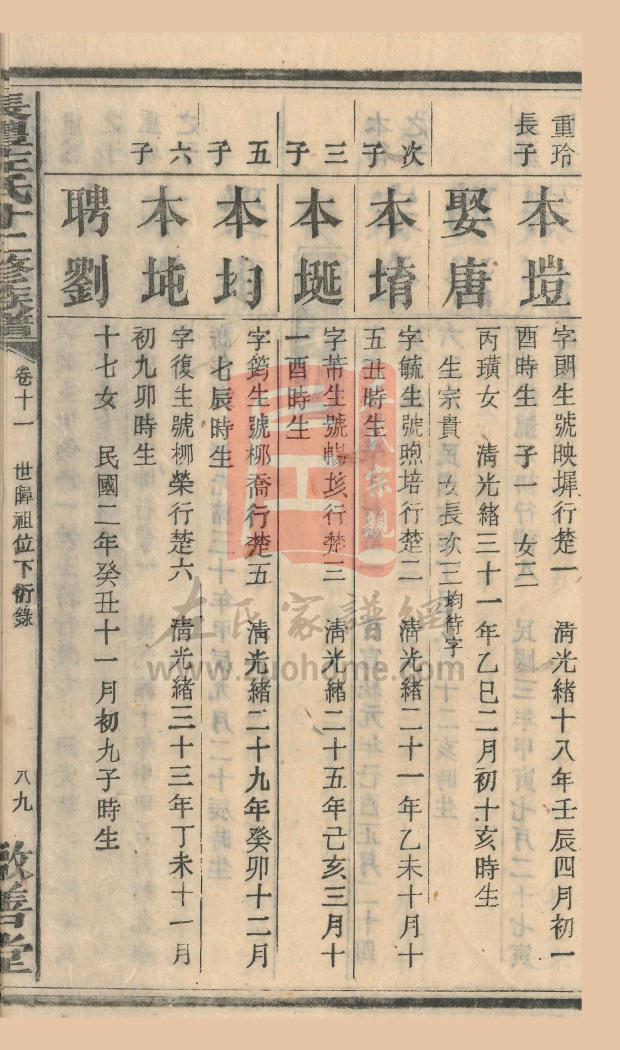 重玲
長子
本塏
字朗生號映墀行楚一 清光緒十八年壬辰四月初一
酉時生 子一 女三
娶唐
丙璜女 清光緒三十一年乙巳二月初十亥時生
生宗貴 女長次三均待字
次子
本堉
字毓生號煦培行楚二 清光緒二十一年乙未十月十
五丑時生
三子
本埏
字芾生號暢垓行楚三 清光緒二十五年己亥三月十
一酉時生
五子
本均
字筠生號柳喬行楚五 清光緒二十九年癸卯十二月
七辰時生
六子
本坉
字復生號柳榮行楚六 清光緒三十三年丁未十一月
初九卯時生
聘劉
十七女 民國二年癸丑十一月初九子時生
左氏十二修族譜
卷十一 世暲祖位下衍錄
八九
敦善堂
左氏家譜網
www.zuohome.com